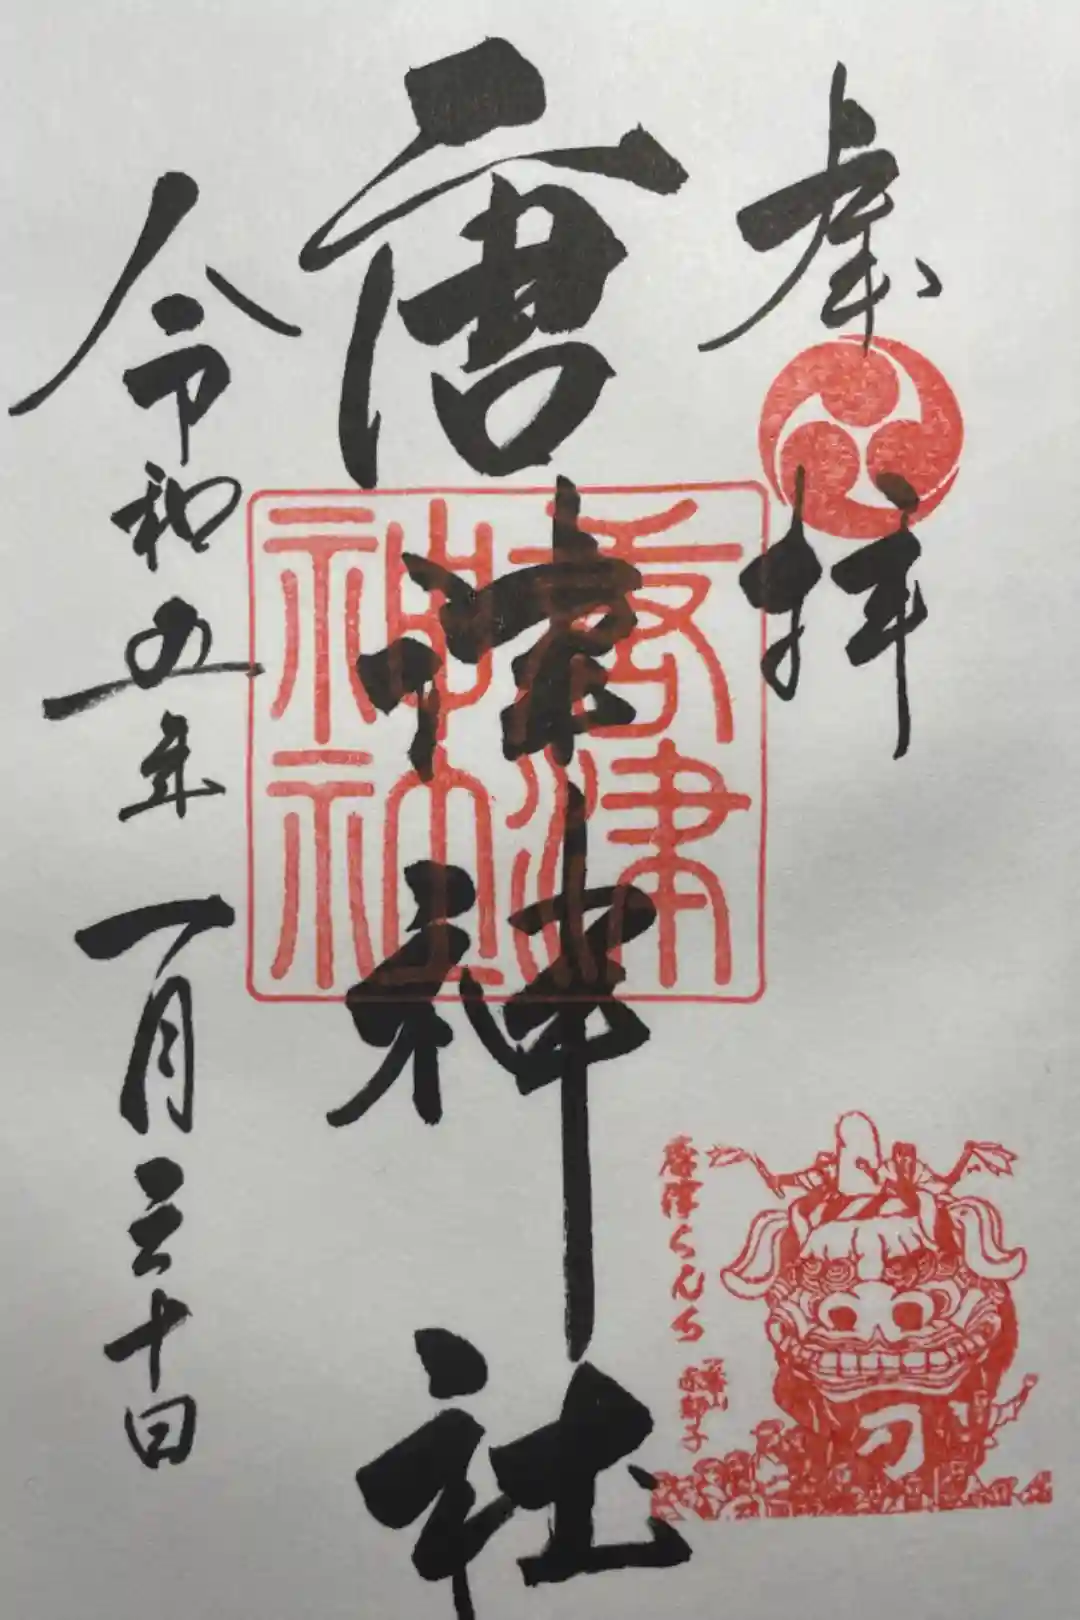 奉拝
唐津神社
令和五年一月三十日
唐津神社
唐津くんち
一番曳山
赤獅子
刀